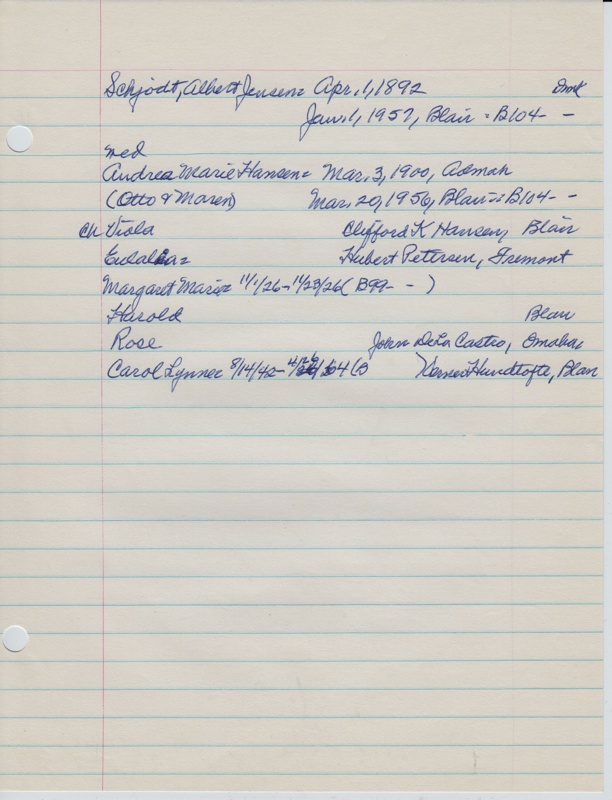 Schjodt, Albert Jensen = Apr. 1, 1892 Dmk
Jan. 1, 1957, Blair = B104- -
med
Andrea Marie Hansen = Mar. 3, 1900, Admah
(Otto & Maren) Mar. 20, 1956, Blair = B104- -
Ch Viola Clifford K Hansen, Blair
Eulalia = Hubert Petersen, Fremont
Margaret Marie = 11/1/26-11/23/26 (B99- - )
Harold Blair
Rose John DeLa Castro, Omaha
Carol Lynne = 8/14/42- 4/26/64 (B Hundtofte, Blair